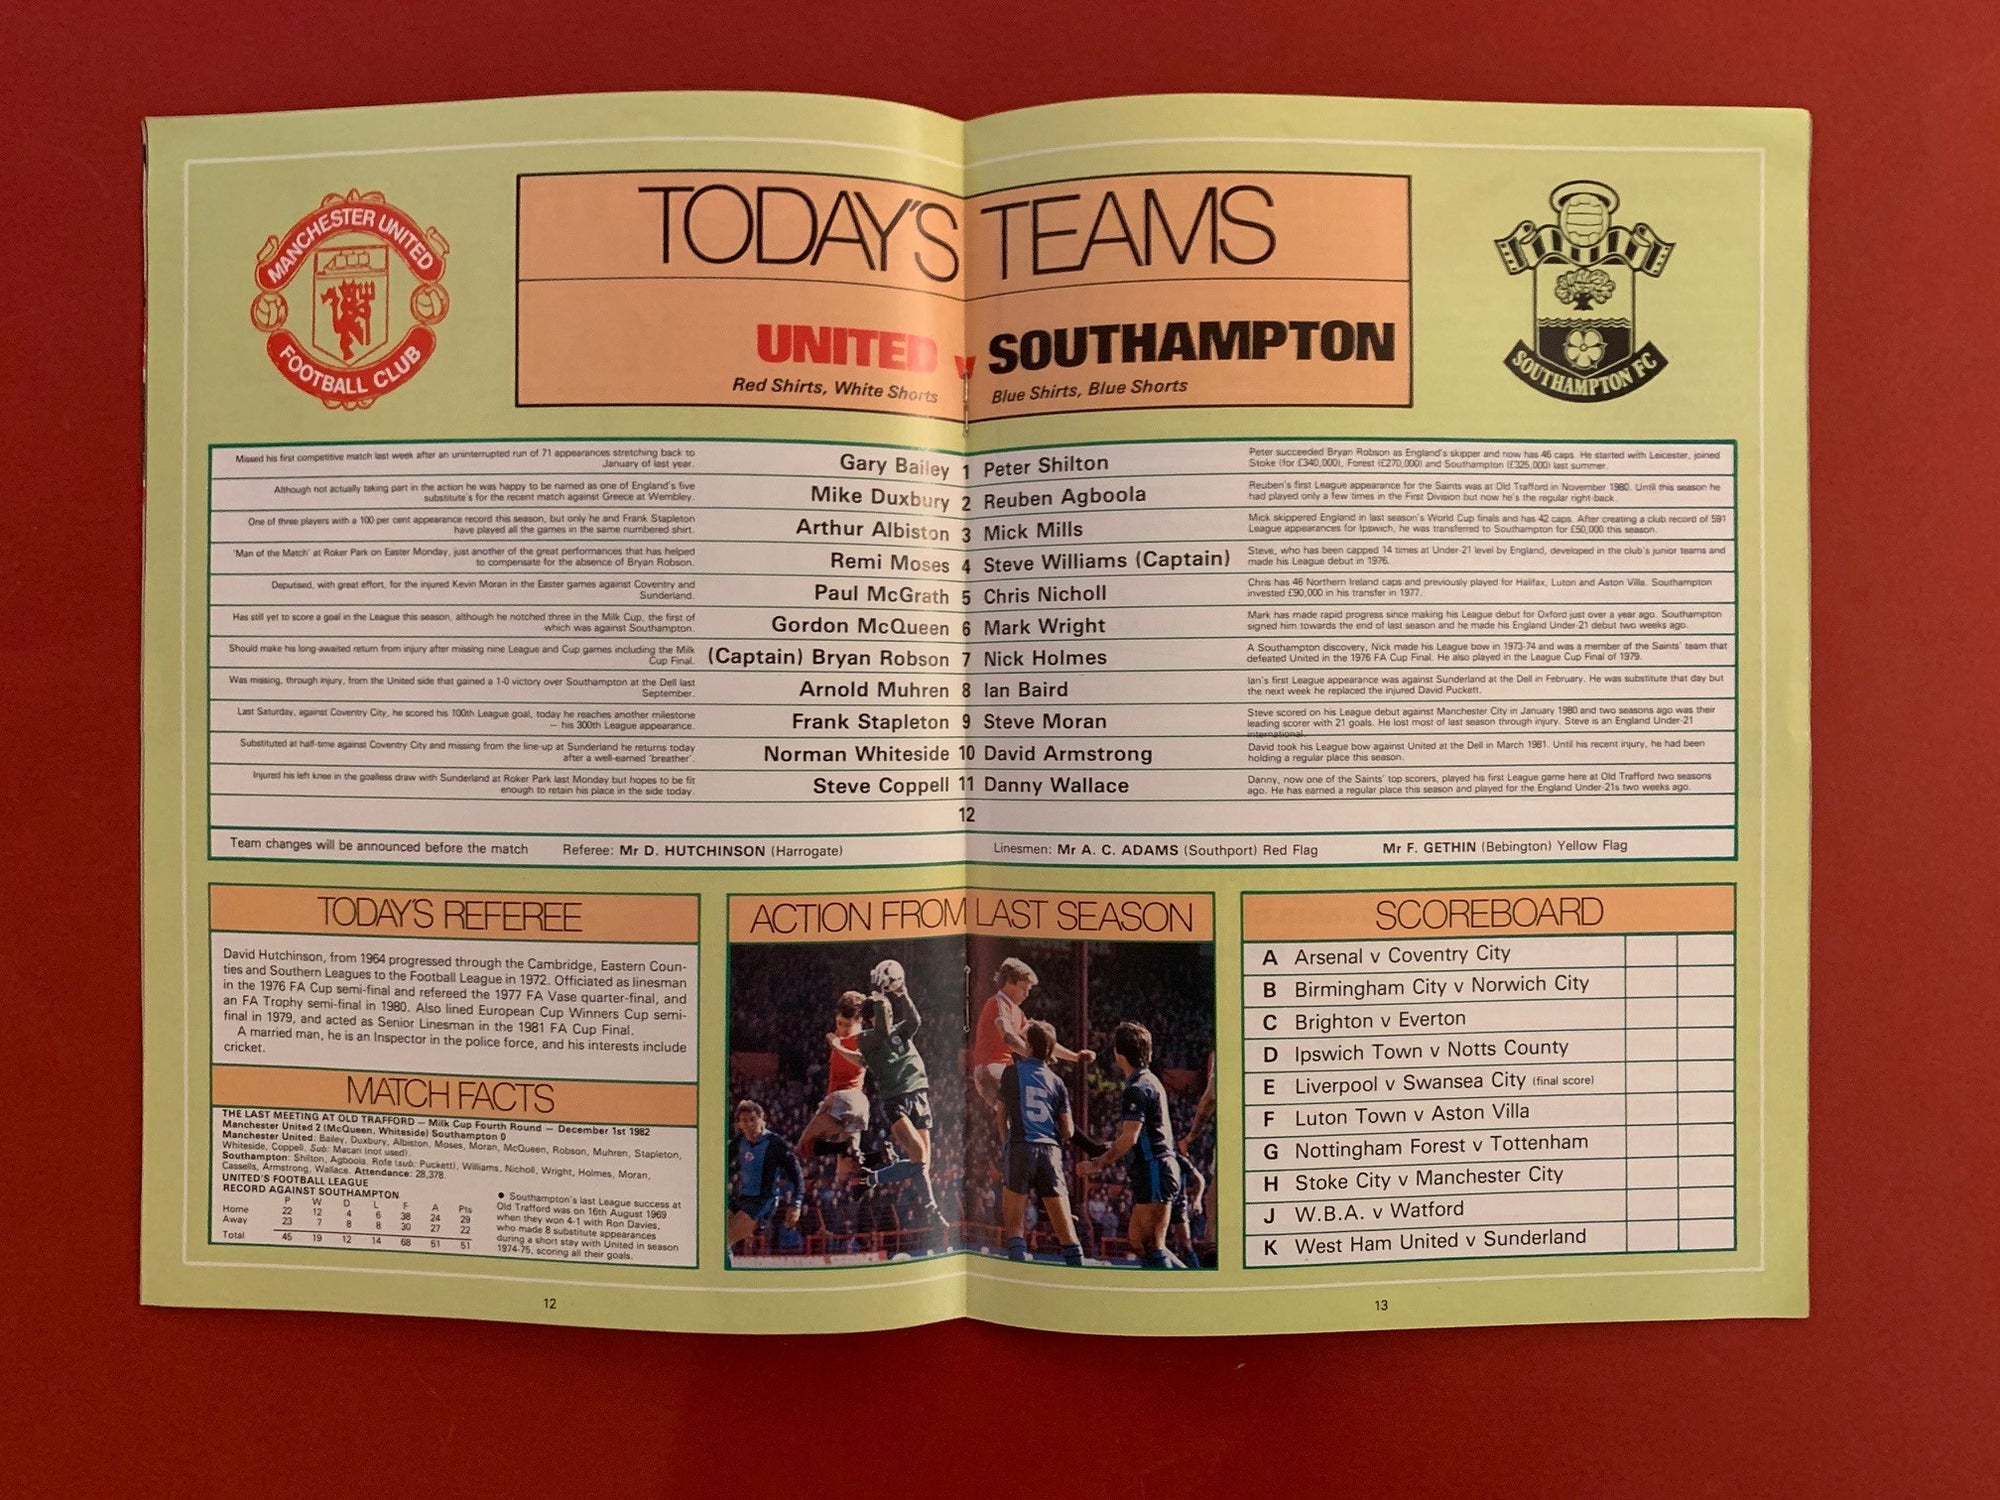 MANCHESTER UNITED
FOOTBALL CLUB
TODAY'S TEAMS
UNITED v SOUTHAMPTON
Red Shirts, White Shorts
Blue Shirts, Blue Shorts
SOUTHAMPTON FC
Missed his first competitive match last week after an uninterrupted run of 71 appearances stretching back to
January of last year.
Gary Bailey 1 Peter Shilton
Peter succeeded Bryan Robson as England's skipper and now has 46 caps. He started with Leicester, joined
Stoke (for £340,000), Forest (£270,000) and Southampton (£325,000) last summer.
Although not actually taking part in the action he was happy to be named as one of England's five
substitute's for the recent match against Greece at Wembley.
Mike Duxbury 2 Reuben Agboola
Reuben's first League appearance for the Saints was at Old Trafford in November 1980. Until this season he
had played only a few times in the First Division but now he's the regular right-back.
One of three players with a 100 per cent appearance record this season, but only he and Frank Stapleton
have played all the games in the same numbered shirt.
Arthur Albiston 3 Mick Mills
Mick skippered England in last season's World Cup finals and has 42 caps. After creating a club record of 591
League appearances for Ipswich, he was transferred to Southampton for £50,000 this season.
'Man of the Match' at Roker Park on Easter Monday, just another of the great performances that has helped
to compensate for the absence of Bryan Robson.
Remi Moses 4 Steve Williams (Captain)
Steve, who has been capped 14 times at Under-21 level by England, developed in the club's junior teams and
made his League debut in 1976.
Deputised, with great effort, for the injured Kevin Moran in the Easter games against Coventry and
Sunderland.
Paul McGrath 5 Chris Nicholl
Chris has 46 Northern Ireland caps and previously played for Halifax, Luton and Aston Villa. Southampton
invested £90,000 in his transfer in 1977.
Has still yet to score a goal in the League this season, although he notched three in the Milk Cup, the first of
which was against Southampton.
Gordon McQueen 6 Mark Wright
Mark has made rapid progress since making his League debut for Oxford just over a year ago. Southampton
signed him towards the end of last season and he made his England Under-21 debut two weeks ago.
Should make his long-awaited return from injury after missing nine League and Cup games including the Milk
Cup Final.
(Captain) Bryan Robson 7 Nick Holmes
A Southampton discovery, Nick made his League bow in 1973-74 and was a member of the Saints' team that
defeated United in the 1976 FA Cup Final. He also played in the League Cup Final of 1979.
Was missing, through injury, from the United side that gained a 1-0 victory over Southampton at the Dell last
September.
Arnold Muhren 8 Ian Baird
Ian's first League appearance was against Sunderland at the Dell in February. He was substitute that day but
the next week he replaced the injured David Puckett.
Last Saturday, against Coventry City, he scored his 100th League goal, today he reaches another milestone
— his 300th League appearance.
Frank Stapleton 9 Steve Moran
Steve scored on his League debut against Manchester City in January 1980 and two seasons ago was their
leading scorer with 21 goals. He lost most of last season through injury. Steve is an England Under-21
international.
Substituted at half-time against Coventry City and missing from the line-up at Sunderland he returns today
after a well-earned 'breather'.
Norman Whiteside 10 David Armstrong
David took his League bow against United at the Dell in March 1981. Until his recent injury, he had been
holding a regular place this season.
Injured his left knee in the goalless draw with Sunderland at Roker Park last Monday but hopes to be fit
enough to retain his place in the side today.
Steve Coppell 11 Danny Wallace
Danny, now one of the Saints' top scorers, played his first League game here at Old Trafford two seasons
ago. He has earned a regular place this season and played for the England Under-21s two weeks ago.
12
Team changes will be announced before the match Referee: Mr D. HUTCHINSON (Harrogate) Linesmen: Mr A. C. ADAMS (Southport) Red Flag Mr F. GETHIN (Bebington) Yellow Flag
TODAY'S REFEREE
David Hutchinson, from 1964 progressed through the Cambridge, Eastern Coun-
ties and Southern Leagues to the Football League in 1972. Officiated as linesman
in the 1976 FA Cup semi-final and refereed the 1977 FA Vase quarter-final, and
an FA Trophy semi-final in 1980. Also lined European Cup Winners Cup semi-
final in 1979, and acted as Senior Linesman in the 1981 FA Cup Final.
A married man, he is an Inspector in the police force, and his interests include
cricket.
MATCH FACTS
THE LAST MEETING AT OLD TRAFFORD — Milk Cup Fourth Round — December 1st 1982
Manchester United 2 (McQueen, Whiteside) Southampton 0
Manchester United: Bailey, Duxbury, Albiston, Moses, Moran, McQueen, Robson, Muhren, Stapleton,
Whiteside, Coppell. Sub: Macari (not used).
Southampton: Shilton, Agboola, Rofe (sub: Puckett), Williams, Nicholl, Wright, Holmes, Moran,
Cassells, Armstrong, Wallace. Attendance: 28,378.
UNITED'S FOOTBALL LEAGUE
RECORD AGAINST SOUTHAMPTON
P W D L F A Pts
Home 22 12 4 6 38 24 29
Away 23 7 8 8 30 27 22
Total 45 19 12 14 68 51 51
● Southampton's last League success at
Old Trafford was on 16th August 1969
when they won 4-1 with Ron Davies,
who made 8 substitute appearances
during a short stay with United in season
1974-75, scoring all their goals.
ACTION FROM LAST SEASON
5
SCOREBOARD
A Arsenal v Coventry City
B Birmingham City v Norwich City
C Brighton v Everton
D Ipswich Town v Notts County
E Liverpool v Swansea City (final score)
F Luton Town v Aston Villa
G Nottingham Forest v Tottenham
H Stoke City v Manchester City
J W.B.A. v Watford
K West Ham United v Sunderland
12
13